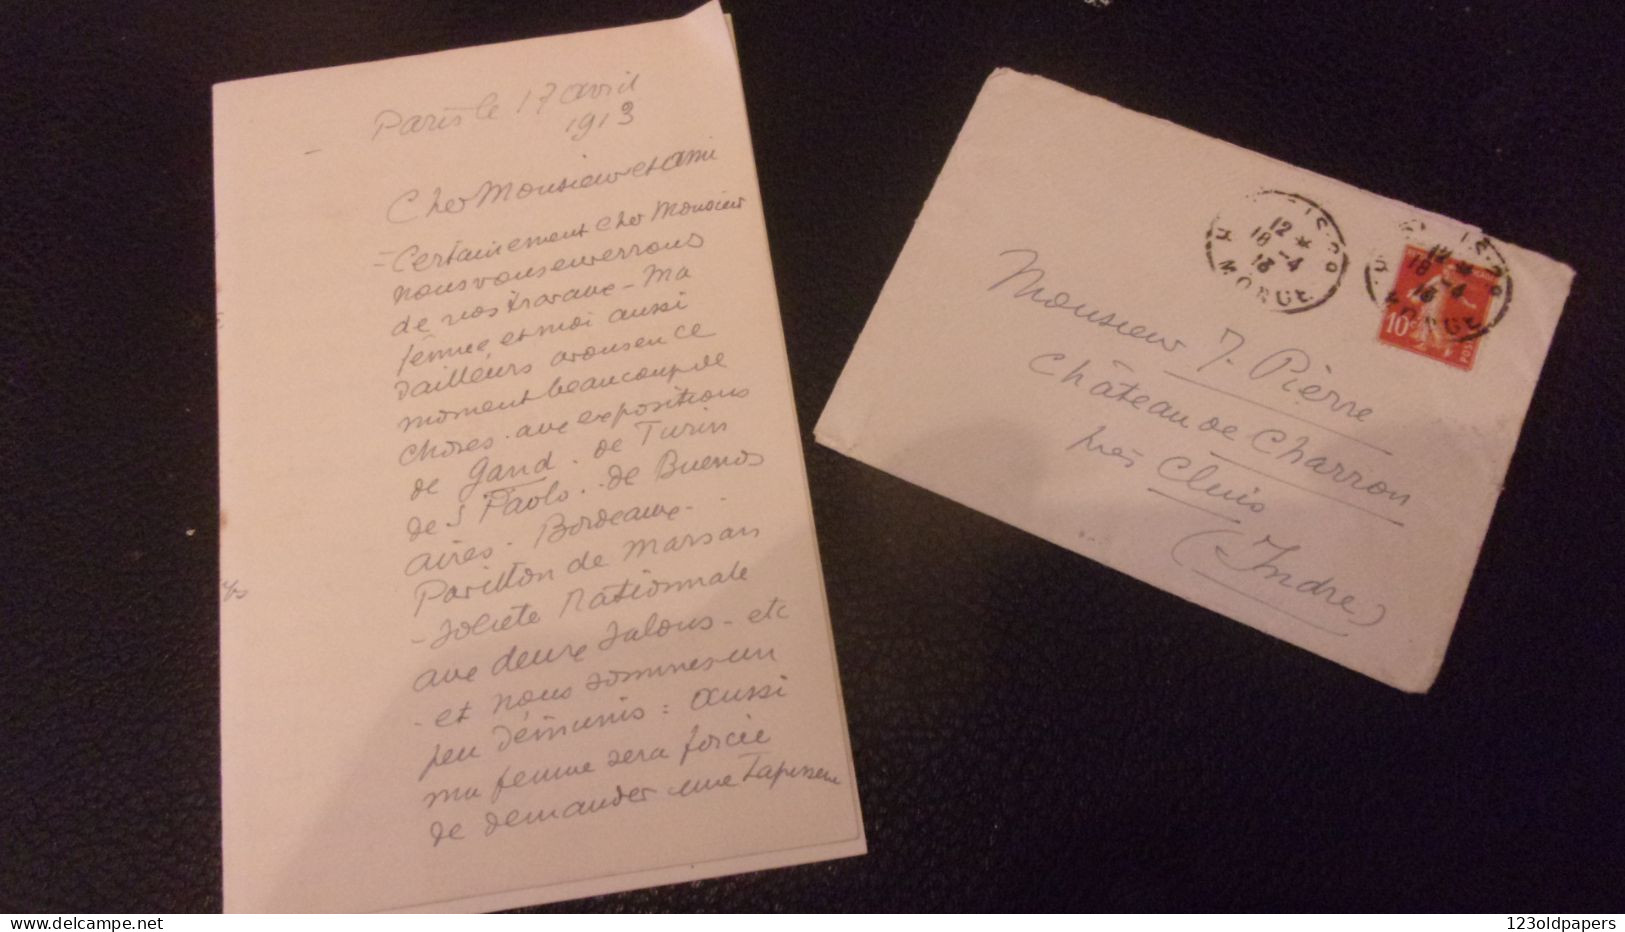 Paris le 17 avril
1913
Cher Monsieur et ami
- Certainement cher Monsieur
nous vous enverrons
de nos travaux - Ma
femme et moi aussi
d'ailleurs avons en ce
moment beaucoup de
choses aux expositions
de Gand. de Turin
de S Paolo. de Buenos
aires. Bordeaux.
Pavillon de Marsan
- Société Nationale
aux deux Salons - etc
- et nous sommes un
peu démunis : aussi
ma femme sera forcée
de demander une Tapisserie
Monsieur J. Pierre
Château de Charron
près Cluis
(Indre)
12 *
18 -4
13
MONGE
12 *
18 -4
13
10c
POSTES
123oldpapers